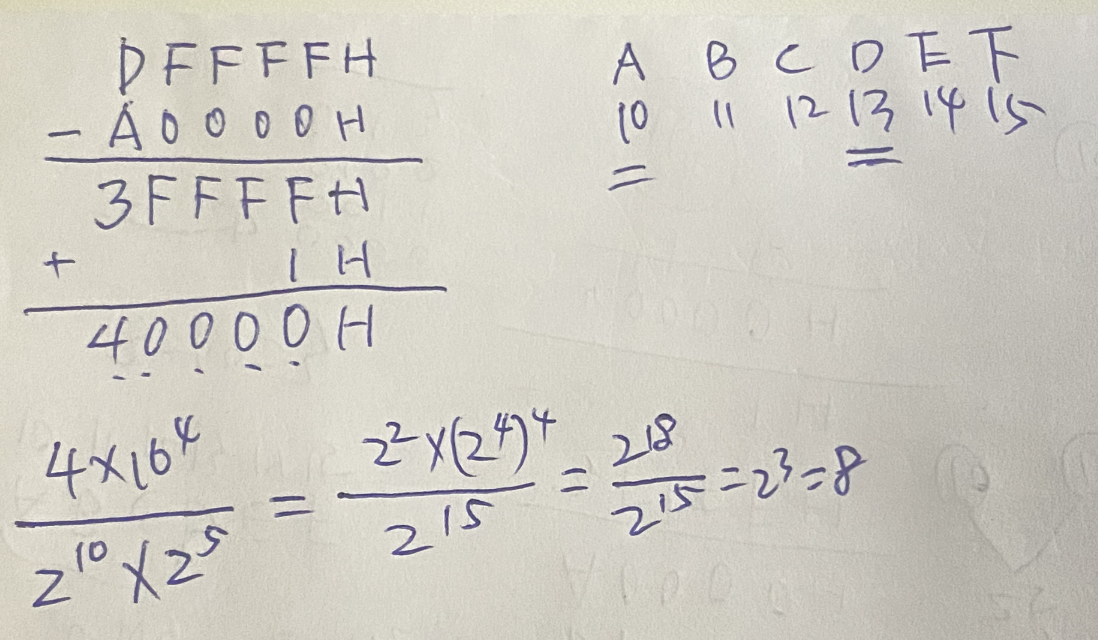 DFFFFH
- A0000H
3FFFFH
+ 1H
40000H
A B C D E F
10 11 12 13 14 15
4×16^4 / 2^10×2^5 = 2^2×(2^4)^4 / 2^15 = 2^18 / 2^15 = 2^3 = 8